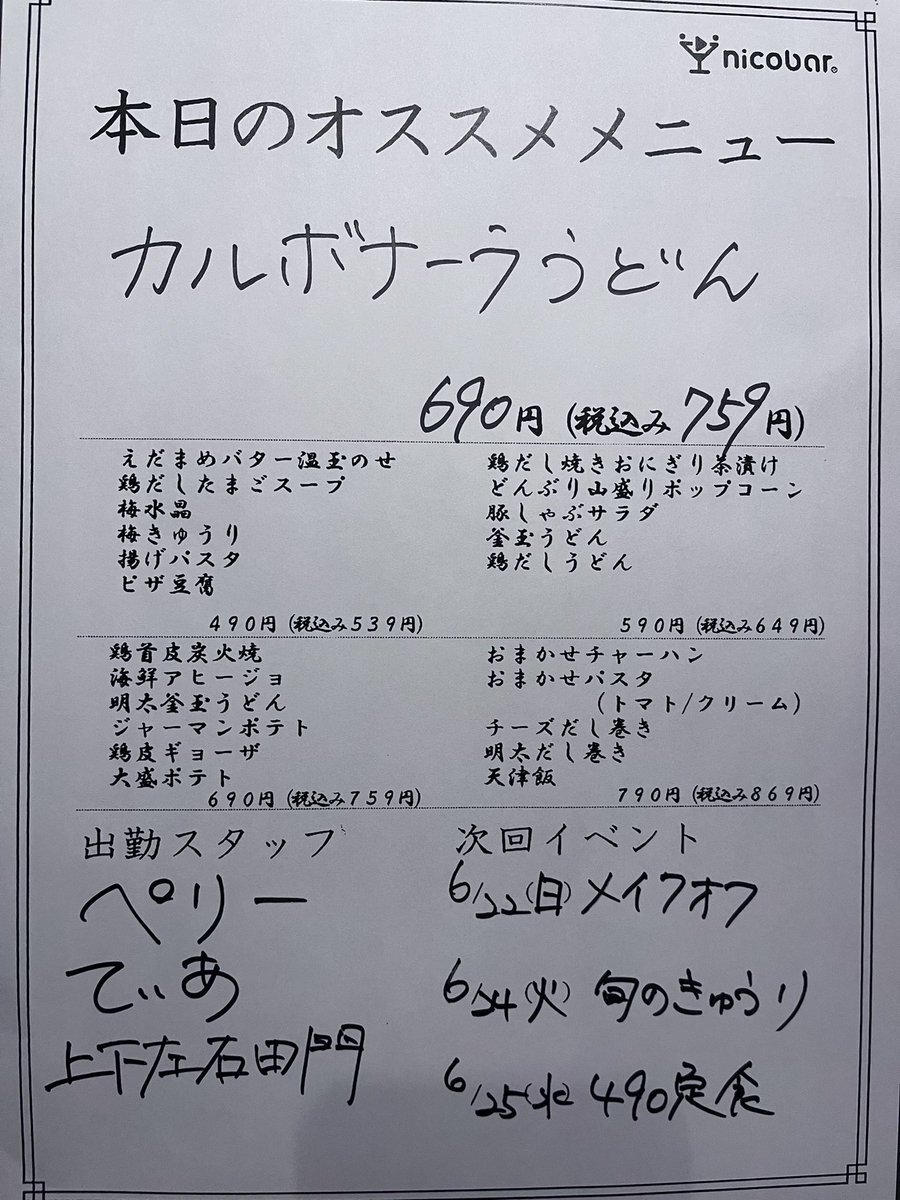 nicobar
本日のオススメメニュー
カルボナーラうどん
690円(税込み759円)
えだまめバター温玉のせ
鶏だしたまごスープ
梅水晶
梅きゅうり
揚げパスタ
ピザ豆腐
490円(税込み539円)
鶏だし焼きおにぎり茶漬け
どんぶり山盛りポップコーン
豚しゃぶサラダ
釜玉うどん
鶏だしうどん
590円(税込み649円)
鶏首皮炭火焼
海鮮アヒージョ
明太釜玉うどん
ジャーマンポテト
鶏皮ギョーザ
大盛ポテト
690円(税込み759円)
おまかせチャーハン
おまかせパスタ
(トマト/クリーム)
チーズだし巻き
明太だし巻き
天津飯
790円(税込み869円)
出勤スタッフ
ペリー
てぃあ
上下左右田門
次回イベント
6/22(日)メイクオフ
6/24(火)旬のきゅうり
6/25(水)490定食